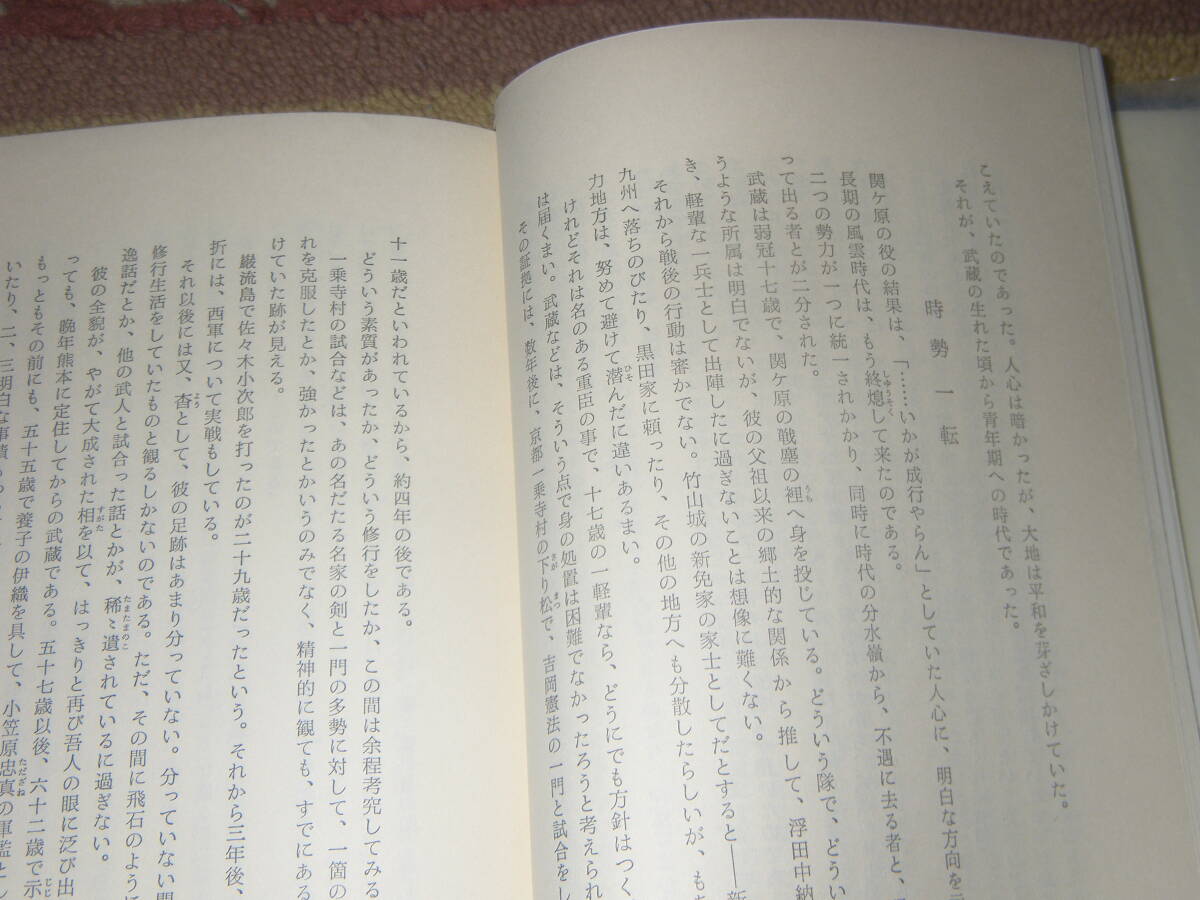 こえていたのであった。人心は暗かったが、大地は平和を芽ざしかけていた。
それが、武蔵の生れた頃から青年期への時代であった。
時勢一転
関ケ原の役の結果は、「……いかが成行やらん」としていた人心に、明白な方向を
長期の風雲時代は、もう終熄して来たのである。
しゅうそく
二つの勢力が一つに統一されかかり、同時に時代の分水嶺から、不遇に去る者と、
って出る者とが二分された。
武蔵は弱冠十七歳で、関ケ原の戦塵の裡へ身を投じている。どういう隊で、どうい
うち
うような所属は明白でないが、彼の父祖以来の郷土的な関係から推して、浮田中納
き、軽輩な一兵士として出陣したに過ぎないことは想像に難くない。
それから戦後の行動は審かでない。竹山城の新免家の家士としてだとすると――新
九州へ落ちのびたり、黒田家に頼ったり、その他の地方へも分散したらしいが、も
力地方は、努めて避けて潜んだに違いあるまい。
ひそ
けれどそれは名のある重臣の事で、十七歳の一軽輩なら、どうにでも方針はつく
は届くまい。武蔵などは、そういう点で身の処置は困難でなかったろうと考えられ
その証拠には、数年後に、京都一乗寺村の下り松で、吉岡憲法の一門と試合をし
さが まつ
十一歳だといわれているから、約四年の後である。
どういう素質があったか、どういう修行をしたか、この間は余程考究してみる
一乗寺村の試合などは、あの名だたる名家の剣と一門の多勢に対して、一箇の
れを克服したとか、強かったとかいうのみでなく、精神的に観ても、すでにある
けていた跡が見える。
巌流島で佐々木小次郎を打ったのが二十九歳だったという。それから三年後、
折には、西軍について実戦もしている。
それ以後には又、杳として、彼の足跡はあまり分っていない。分っていない間
よう
修行生活をしていたものと観るしかないのである。ただ、その間に飛石のように
逸話だとか、他の武人と試合った話とかが、稀〻遺されているに過ぎない。
たまたまのこ
彼の全貌が、やがて大成された相を以て、はっきりと再び吾人の眼に泛び出
すがた
っても、晩年熊本に定住してからの武蔵である。五十七歳以後、六十二歳で示
じじ
もっともその前にも、五十五歳で養子の伊織を具して、小笠原忠真の軍監とし
ただざね
いたり、二、三明白な事蹟